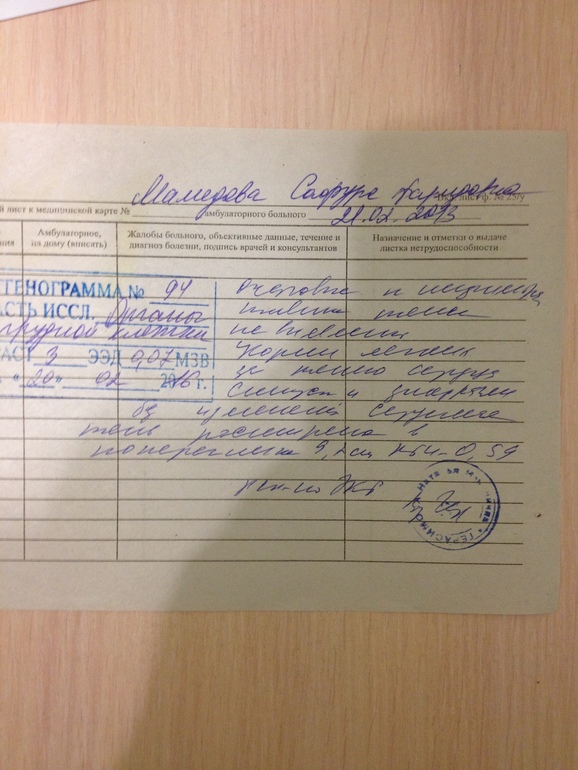 Мамедова
й лист к медицинской карте № амбулаторного больного 21.02.2013 ф. № 25/у
ния
Амбулаторное,
на дому (вписать)
Жалобы больного, объективные данные, течение и
диагноз болезни, подпись врачей и консультантов
Назначение и отметки о выдаче
листка нетрудоспособности
ТЕНОГРАММА № 94
АСТЬ ИССЛ. Органы
грудной клетки
РАСТ 3 ЭЭД 0,07 МЗВ
"20" 02 г.
очаговых и
теней
не выявлено
Корни легких
за тенью сердца
Синусы и диафрагма
без изменений Сердечная
тень расширена в
поперечнике 9,2см КТИ-0,59
рек-но ЭКГ